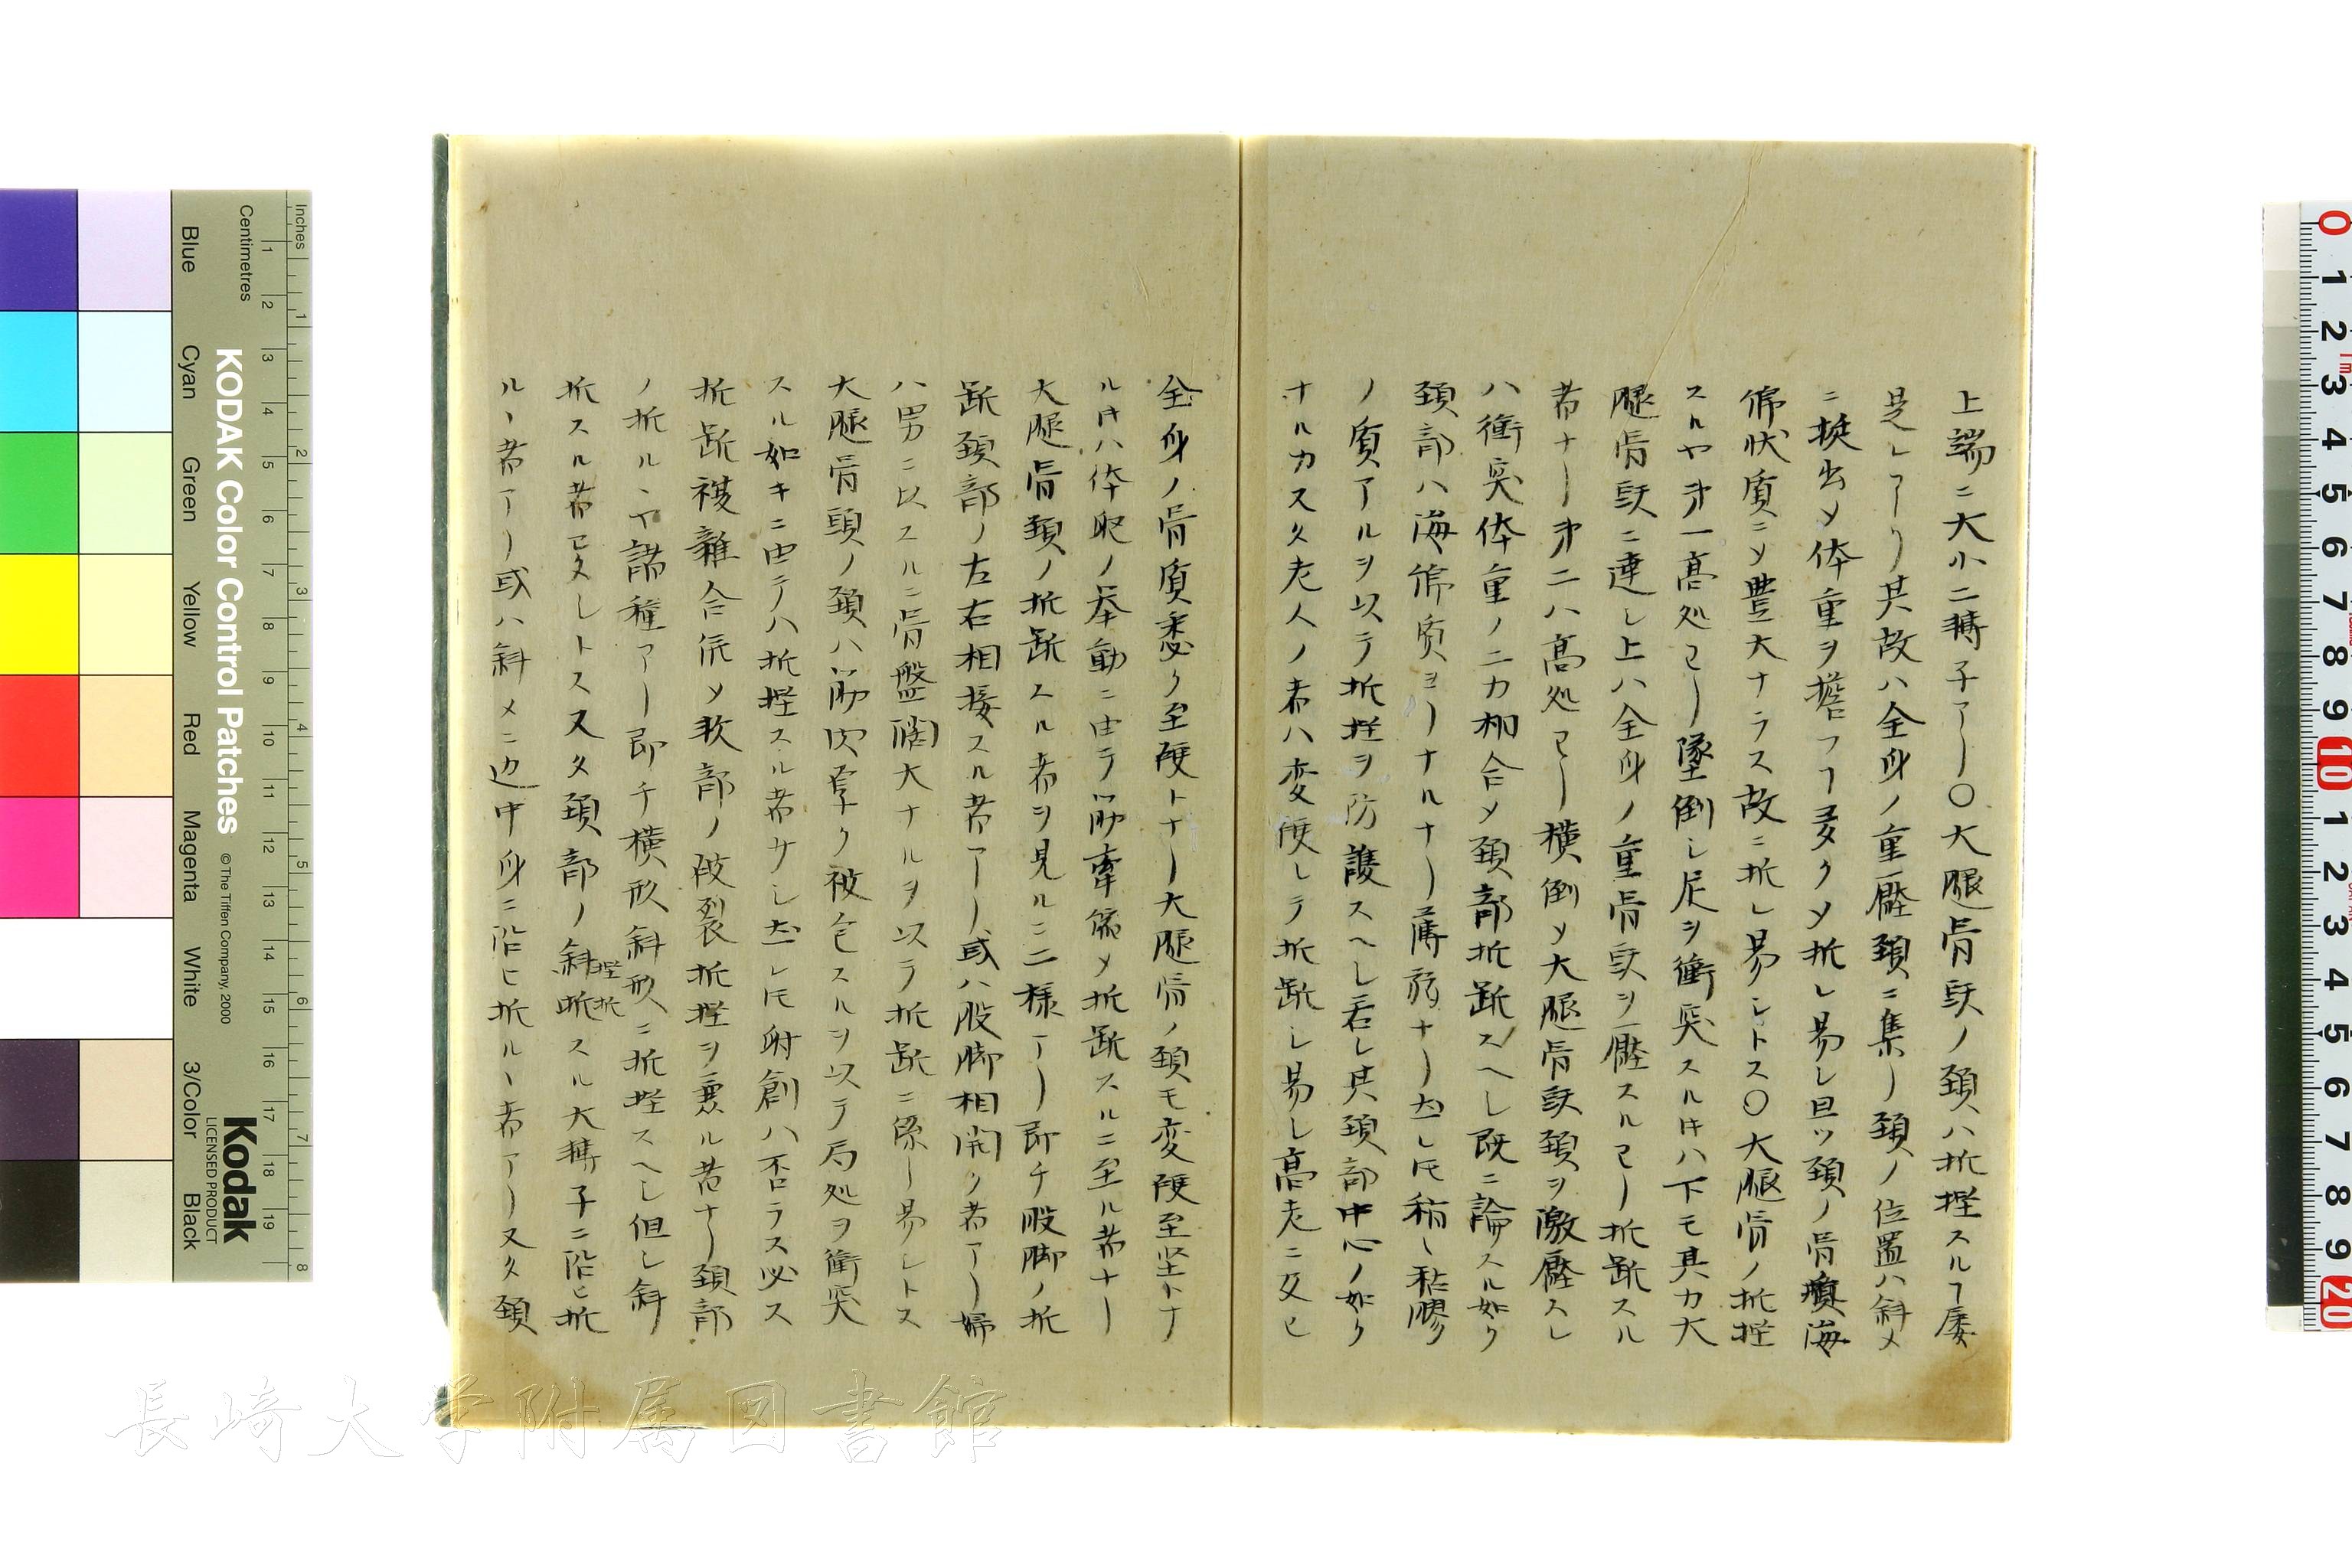 上端ニ大小二轉子アー〇大腿骨頭ノ頚ハ折挫スルヿ屡
是レアーリ其故ハ全身ノ重壓頚ニ集ー頚ノ位置ハ斜メ
ニ挺出メ体重ヲ擔フヿ多クメ折レ易レ且ツ頚ノ骨質海
綿状質ニメ豊大ナラス故ニ折レ易シトス〇大腿骨ノ折挫
スルヤ才一高処ヨー墜倒レ足ヲ衝突スル片ハ下モ其力大
腿骨頭ニ達レ上ハ全身ノ重骨頭ヲ壓スルヨー折断スル
者ナー才二ハ高処ヨー横倒メ大腿骨頭頚ヲ激壓スレ
ハ衝突体重ノ二力相合メ頚部折断スヘレ既ニ論スル如ク
頚部ハ海綿質ヨーナルナー薄弱ナー𪜈稍ヽ粘膠
ノ質アルヲ以テ折挫ヲ防護スヘレ若レ其頚部中心ノ如ク
ナルカス又老人ノ者ハ変硬レテ折断レ易レ高老ニ及ヒ
全身ノ骨質悉ク至硬トナー大腿骨ノ頚モ変硬至坚トナ
ル片ハ体躯ノ挙動ニ由テ筋牽縮メ折断スルニ至ル者ナー
大腿骨頚ノ折断スル者ヲ見ルニ二様アー即チ股脚ノ折
断頚部ノ左右相接スル者アー或ハ股脚相開ク者アー婦
ハ男ニ以スルニ骨盤濶大ナルヲ以テ折断ニ係ー易シトス
大腿骨頭ノ頚ハ筋肉厚ク被包スルヲ以テ局処ヲ衝突
スル如キニ由テハ折挫スル者サレ𪜈射創ハ否ラス必ス
折断複雜合併メ軟部ノ破裂折挫ヲ兼ル者ナー頚部
ノ折ルヽヤ諸種アー即チ横形斜形ニ折挫スヘレ但レ斜
折スル者多レトス又タ頚部ノ斜断挫折スル大轉子ニ沿ヒ折
ルヽ者アー或ハ斜メニ迆中身ニ沿ヒ折ルヽ者アー又タ頚
Inches
Centimetres
KODAK Color Control Patches
© The Tiffen Company, 2000
Kodak
LICENSED PRODUCT
Blue
Cyan
Green
Yellow
Red
Magenta
White
3/Color
Black
長崎大学附属図書館